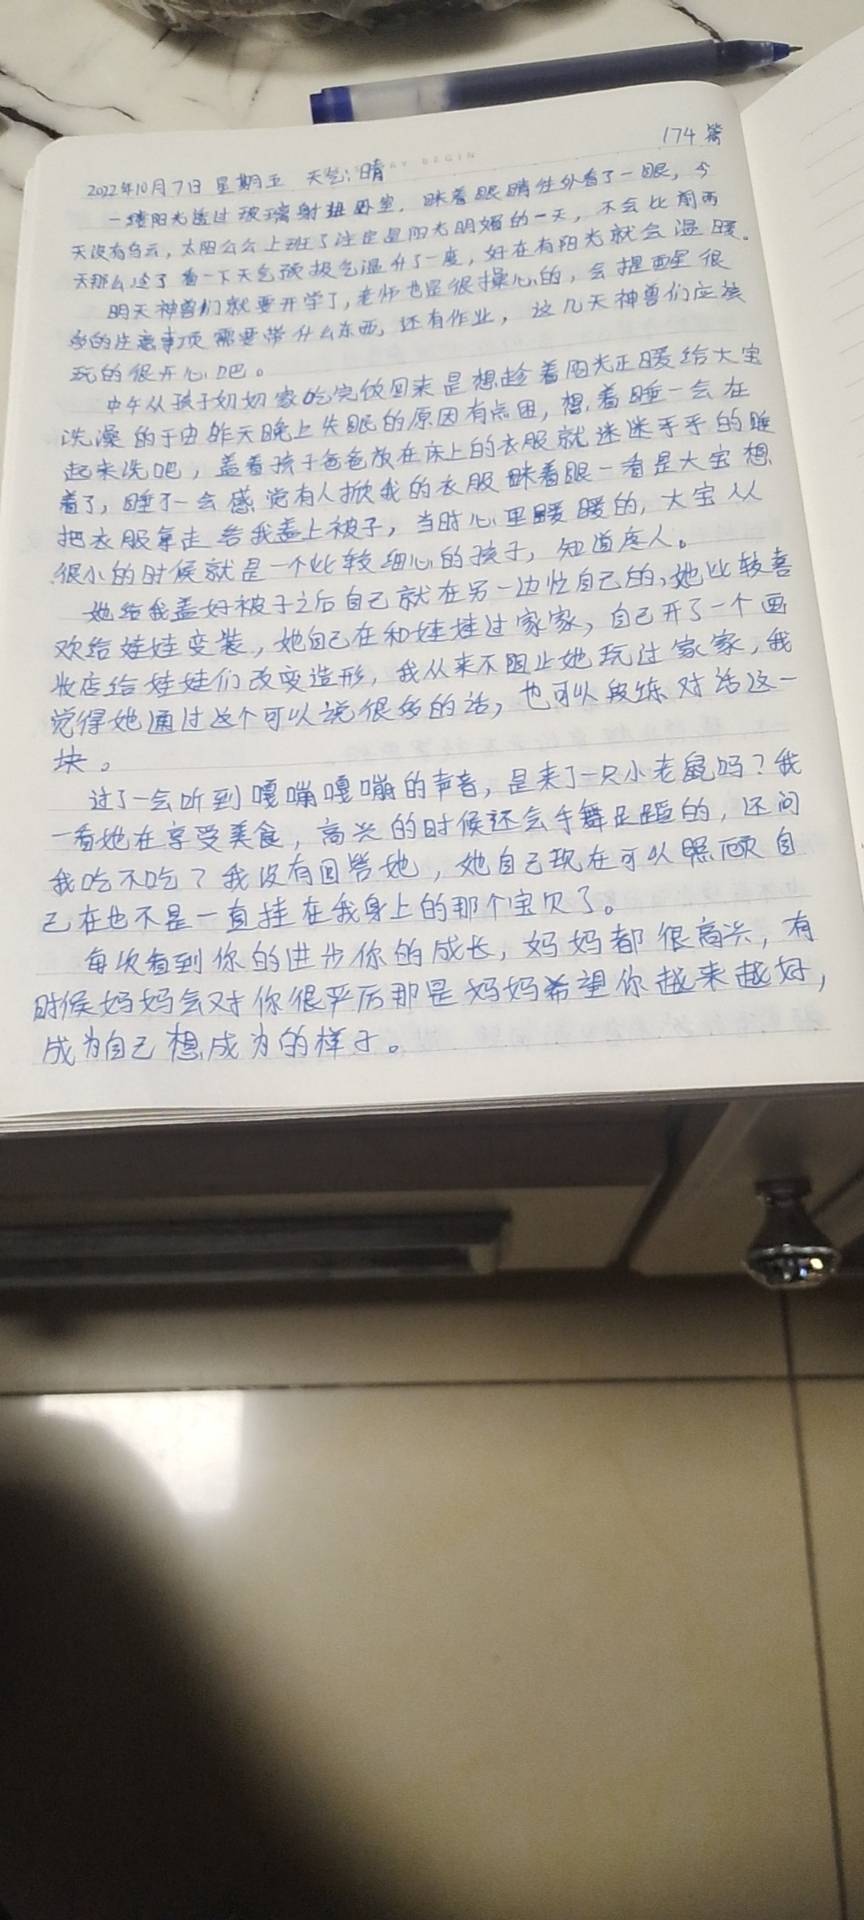 174篇
2022年10月7日 星期五 天气:晴
一缕阳光透过玻璃射进卧室，眯着眼睛往外看了一眼，今
天没有乌云，太阳公公上班了注定是阳光明媚的一天，不会比前两
天那么冷了看一下天气预报气温升了一度，好在有阳光就会温暖。
明天神兽们就要开学了，老师也是很操心的，会提醒很
多的注意事项需要带什么东西，还有作业，这几天神兽们应该
玩的很开心吧。
中午从孩子奶奶家吃完饭回来是想趁着阳光正暖给大宝
洗澡的于由昨天晚上失眠的原因有点困，想着睡一会在
起来洗吧，盖着孩子爸爸放在床上的衣服就迷迷乎乎的睡
着了，睡了一会感觉有人掀我的衣服眯着眼一看是大宝想
把衣服拿走给我盖上被子，当时心里暖暖的，大宝从
很小的时候就是一个比较细心的孩子，知道疼人。
她给我盖好被子之后自己就在另一边忙自己的，她比较喜
欢给娃娃变装，她自己在和娃娃过家家，自己开了一个画
妆店给娃娃们改变造形，我从来不阻止她玩过家家，我
觉得她通过这个可以说很多的话，也可以段练对话这一
块。
过了一会听到嘎嘣嘎嘣的声音，是来了一只小老鼠吗？我
一看她在享受美食，高兴的时候还会手舞足蹈的，还问
我吃不吃？我没有回答她，她自己现在可以照顾自
己在也不是一直挂在我身上的那个宝贝了。
每次看到你的进步你的成长，妈妈都很高兴，有
时候妈妈会对你很严厉那是妈妈希望你越来越好，
成为自己想成为的样子。